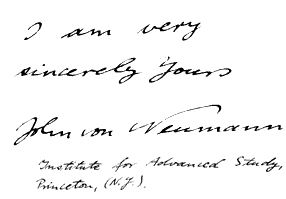 I am very
sincerely Yours
John von Neumann
Institute for Advanced Study,
Princeton, (N.J.).